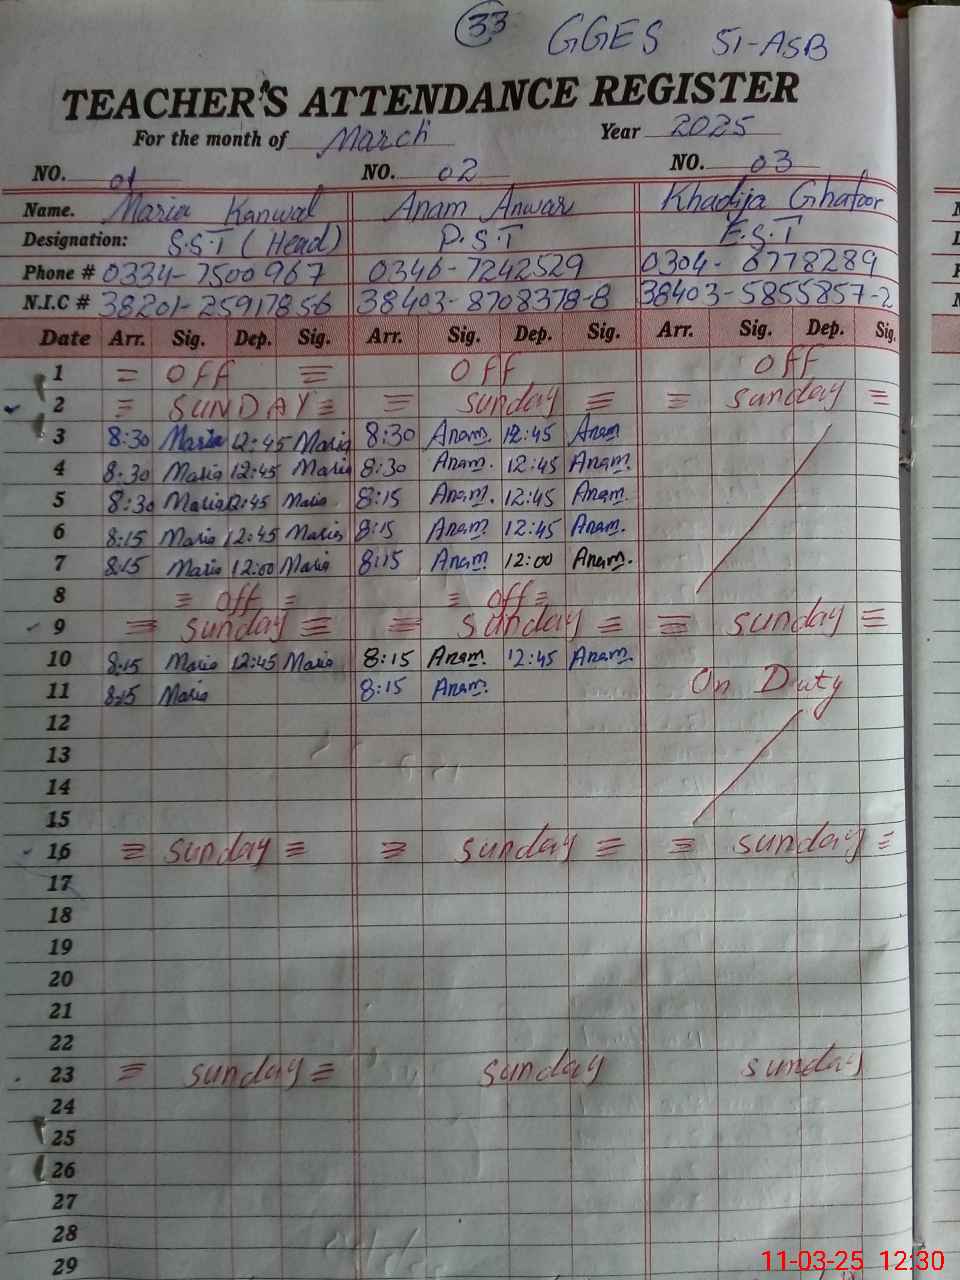 33 GGES 51-ASB
TEACHER'S ATTENDANCE REGISTER
For the month of March Year 2025
NO. 01 NO. 02 NO. 03
Name. Maria Kanwal Anam Anwar Khadija Ghafoor
Designation: S.S.T (Head) P.S.T E.S.T
Phone # 0334-7500967 0346-7242529 0304-8778289
N.I.C # 38201-25917856 38403-8708378-8 38403-5855857-2
Date Arr. Sig. Dep. Sig. Arr. Sig. Dep. Sig. Arr. Sig. Dep. Sig.
1 = Off = Off Off
2 = SUNDAY = = sunday = = sunday =
3 8:30 Maria 12:45 Maria 8:30 Anam. 12:45 Anam
4 8:30 Maria 12:45 Maria 8:30 Anam. 12:45 Anam.
5 8:30 Maria 12:45 Maria 8:15 Anam. 12:45 Anam.
6 8:15 Maria 12:45 Maria 8:15 Anam. 12:45 Anam.
7 8:15 Maria 12:00 Maria 8:15 Anam. 12:00 Anam.
8 = off = = off =
9 = sunday = = sunday = = sunday =
10 8:15 Maria 12:45 Maria 8:15 Anam. 12:45 Anam.
11 8:15 Maria 8:15 Anam. On Duty
12
13
14
15
16 = sunday = = sunday = = sunday =
17
18
19
20
21
22
23 = sunday = sunday sunday
24
25
26
27
28
29
11-03-25 12:30